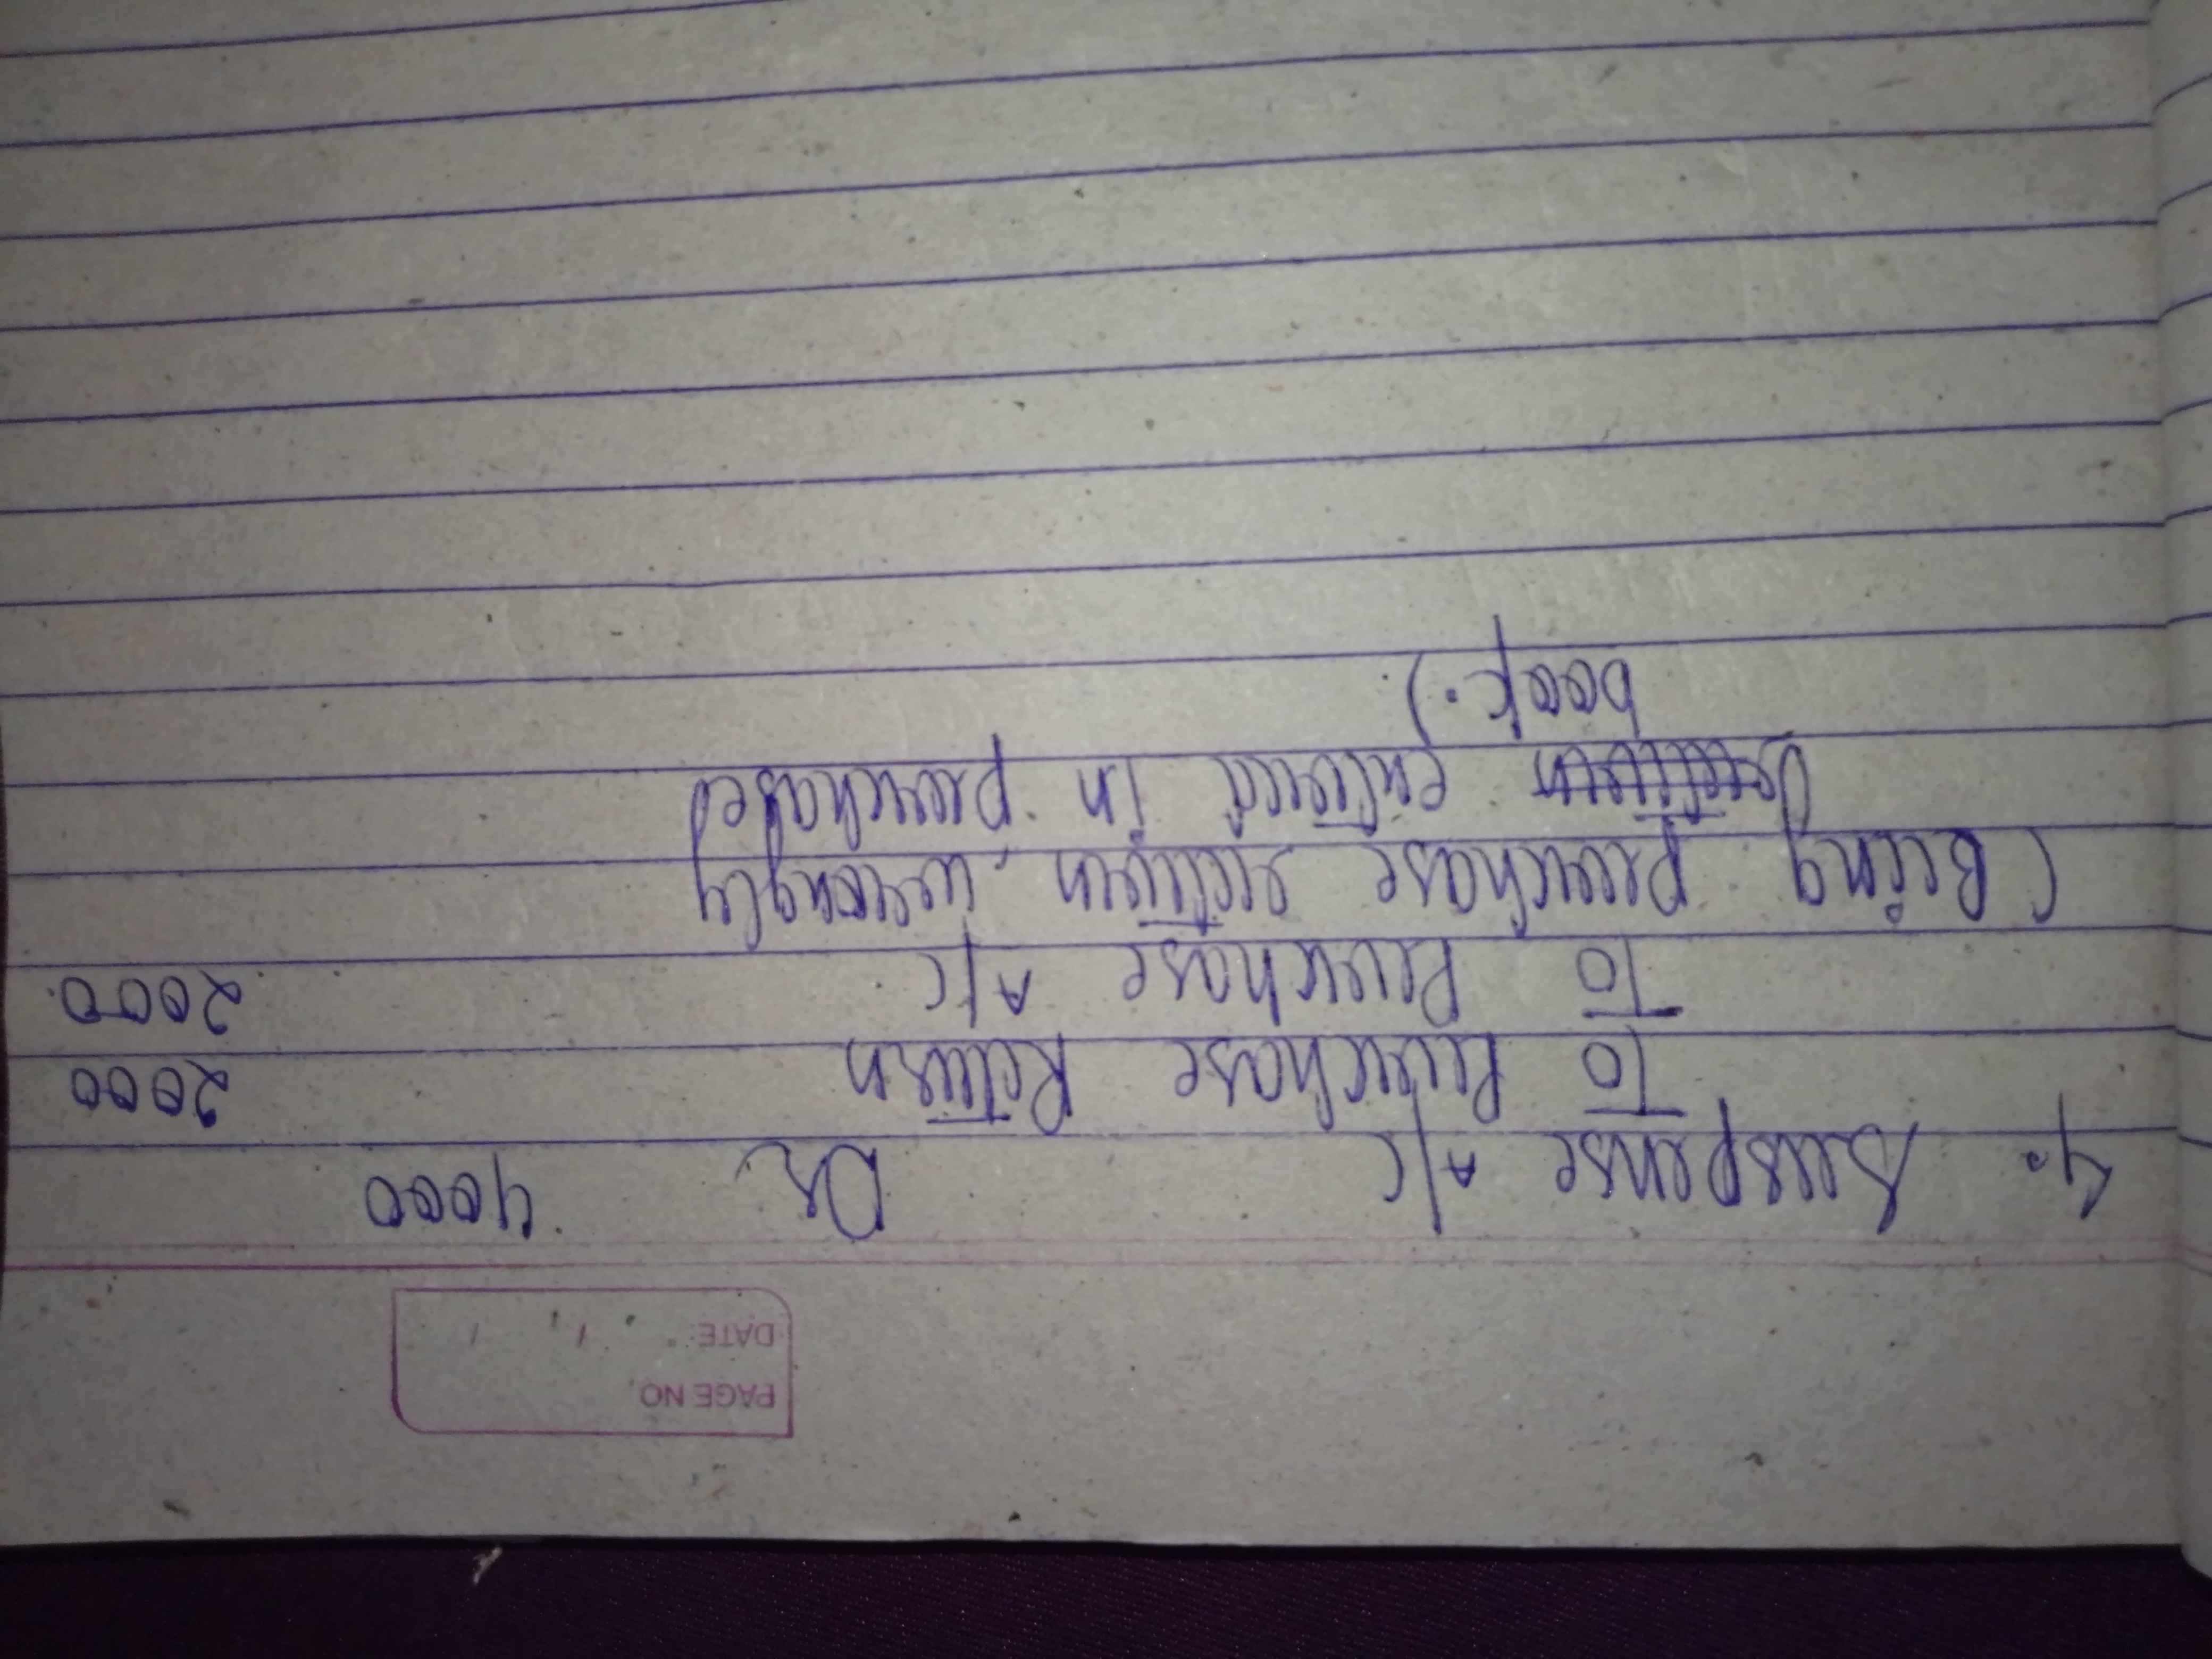 PAGE NO.
DATE: / /
4. Suspense A/c Dr 4000
To Purchase Return 2000
To Purchase A/c 2000
(Being Purchase return wrongly
entered in purchases
book.)